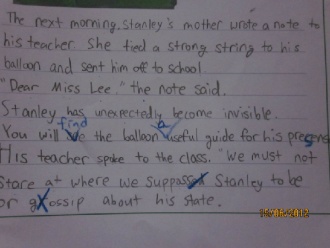 The next morning, Stanley's mother wrote a note to
his teacher. She tied a strong string to his
balloon and sent him off to school.
"Dear Miss Lee," the note said.
Stanley has unexpectedly become invisible.
find a
You will the balloon useful guide for his presens
His teacher spoke to the class. "We must not
stare at where we suppassed Stanley to be
or gossip about his state.
15/08/2012